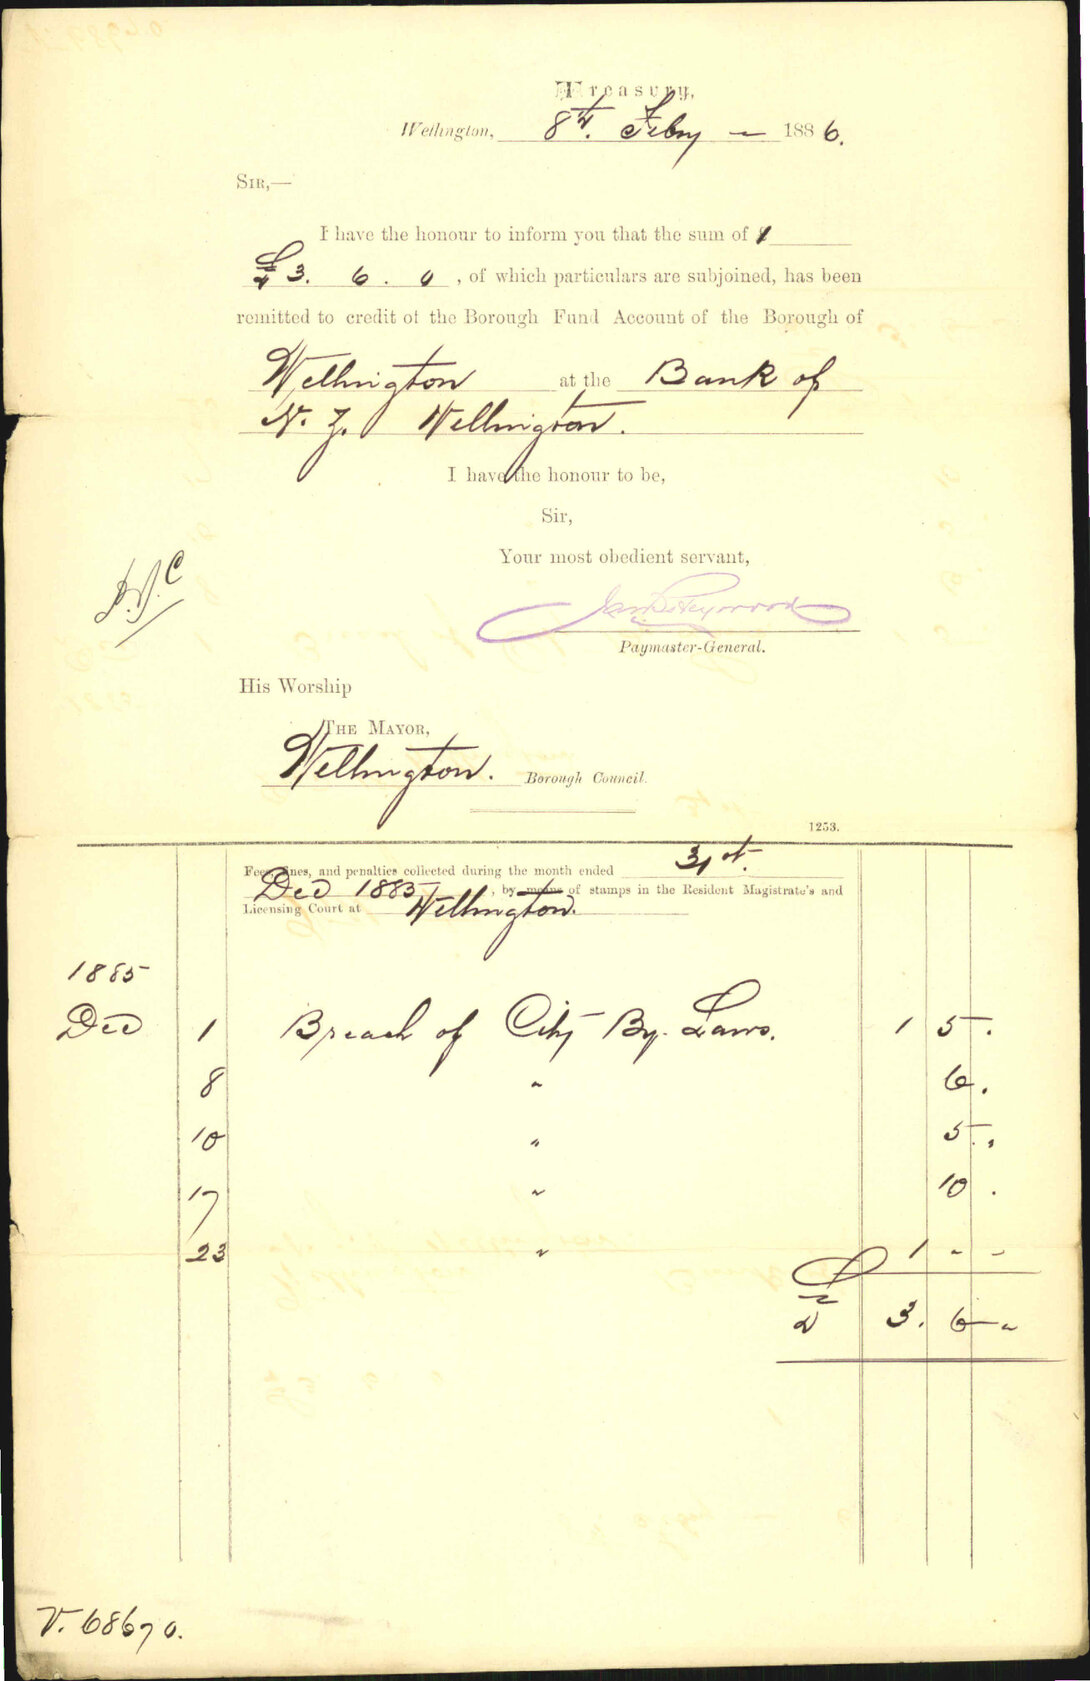 Treasury,
Wellington, 8th. Feby — 1886.
SIR,—
I have the honour to inform you that the sum of
£3. 6. 0, of which particulars are subjoined, has been
remitted to credit of the Borough Fund Account of the Borough of
Wellington at the Bank of
N. Z. Wellington.
I have the honour to be,
Sir,
Your most obedient servant,
Paymaster-General.
His Worship
THE MAYOR,
Wellington. Borough Council.
1253.
Fees, fines, and penalties collected during the month ended 31st.
Dec 1885, by means of stamps in the Resident Magistrate's and
Licensing Court at Wellington.
1885
Dec 1 Breach of City By. Laws. 1 5 .
8 " 6 .
10 " 5 .
17 " 10 .
23 " 1 - -
£ 3. 6 -
V. 68670.